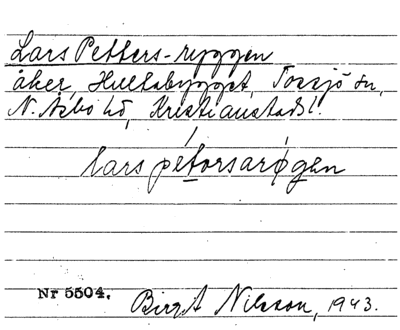 Lars Petters-ryggen
åker, Hultabygget, Tossjö sn,
N. Åsbo hd, Kristianstads l.
lars pétorsarøgen
Nr 5504.
Birgit Nilsson, 1943.